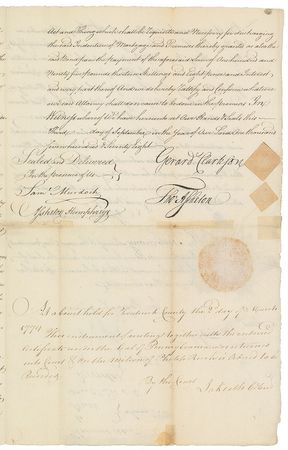 Act and Thing which shall be Requisite and Necessary for discharging
the said Indenture of Mortgage and Premises thereby granted as also the
said Bond from the payment of the aforesaid Sum of One hundred and
Ninety five pounds thirteen Shillings and Eight pence and Interest,
and every part thereof And we do hereby Ratify and Confirm whatsoever
our said Attorney shall do or cause to be done in the premises In
Witness whereof we have hereunto set our Hands & Seals this
Third day of September in the Year of Our Lord One thousand
Seven hundred and Seventy Eight
Sealed and Delivered
In the presence of us
Sam. Murdoch
Ashton Humphreys
Gerard Clarkson
Tho. Ashton
At a Court held for County the 2d day of March
1779
This together with the
Certificate under the Seal of Pennsylvania was returned
into Court & on the motion of ordered to be
Recorded
By the Court